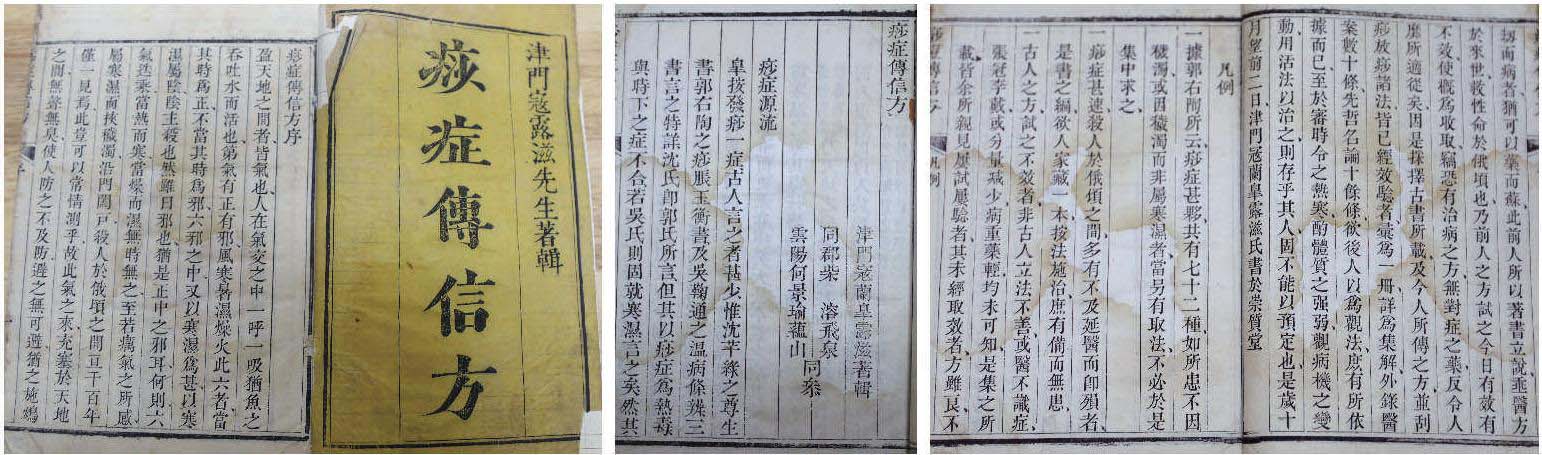 津門寇露滋先生著輯
痧症傳信方
痧症傳信方序
盈天地之間者皆氣也人在氣交之中一呼一吸猶魚之
吞吐水而活也第氣有正有邪風寒暑濕燥火此六者當
其時為正不當其時爲邪六邪之中又以寒濕爲甚以寒
濕屬陰陰主殺也然雖曰邪也猶是正中之邪耳何則六
氣迭乘當熱而寒當燥而濕無時無之至若癘氣之所感
屬寒濕而挾穢濁沿門闔戶殺人於俄頃之間亘千百年
僅一見焉此豈可以常情測乎故此氣之來充塞於天地
之間無聲無臭使人防之不及防避之無可避猶之施鴆
痧症傳信方
津門寇蘭皋露滋著輯
同郡柴 溶飛泉
雲陽何景瑜蘊山 同叅
痧症源流
皋按發痧一症古人言之者甚少惟沈芊綠之尊生
書郭右陶之痧脹玉衡書及吳鞠通之溫病條辨三
書言之特詳沈氏卽郭氏所言但其以痧症爲熱毒
與時下之症不合若吳氏則固就寒濕言之矣然其
刼而病者猶可以藥而蘇此前人所以著書立說垂醫方
於來世救性命於俄頃也乃前人之方試之今日有效有
不效使槪爲収取竊恐有治病之方無對症之藥反令人
靡所適從矣因是採擇古書所載及今人所傳之方並刮
痧放痧諸法皆已經效驗者彙爲一冊詳爲集解外錄醫
案數十條先哲名論十餘條欲後人以爲觀法庶有所依
據而已至於審時令之熱寒酌體質之强弱觀病機之變
動用活法以治之則存乎其人固不能以預定也是歲十
月望前二日津門寇蘭皋露滋氏書於崇質堂
凡例
一據郭右陶所云痧症甚夥共有七十二種如所患不因
穢濁或因穢濁而非屬寒濕者當另有取法不必於是
集中求之
一痧症甚速殺人於俄頃之間多有不及延醫而卽殞者
是書之編欲人家藏一本按法施治庶有備而無患
一古人之方試之不效者非古人立法不善或醫不識症
張冠李戴或分量减少病重藥輕均未可知是集之所
載皆余所親見屢試屢驗者其未經取效者方雖良不